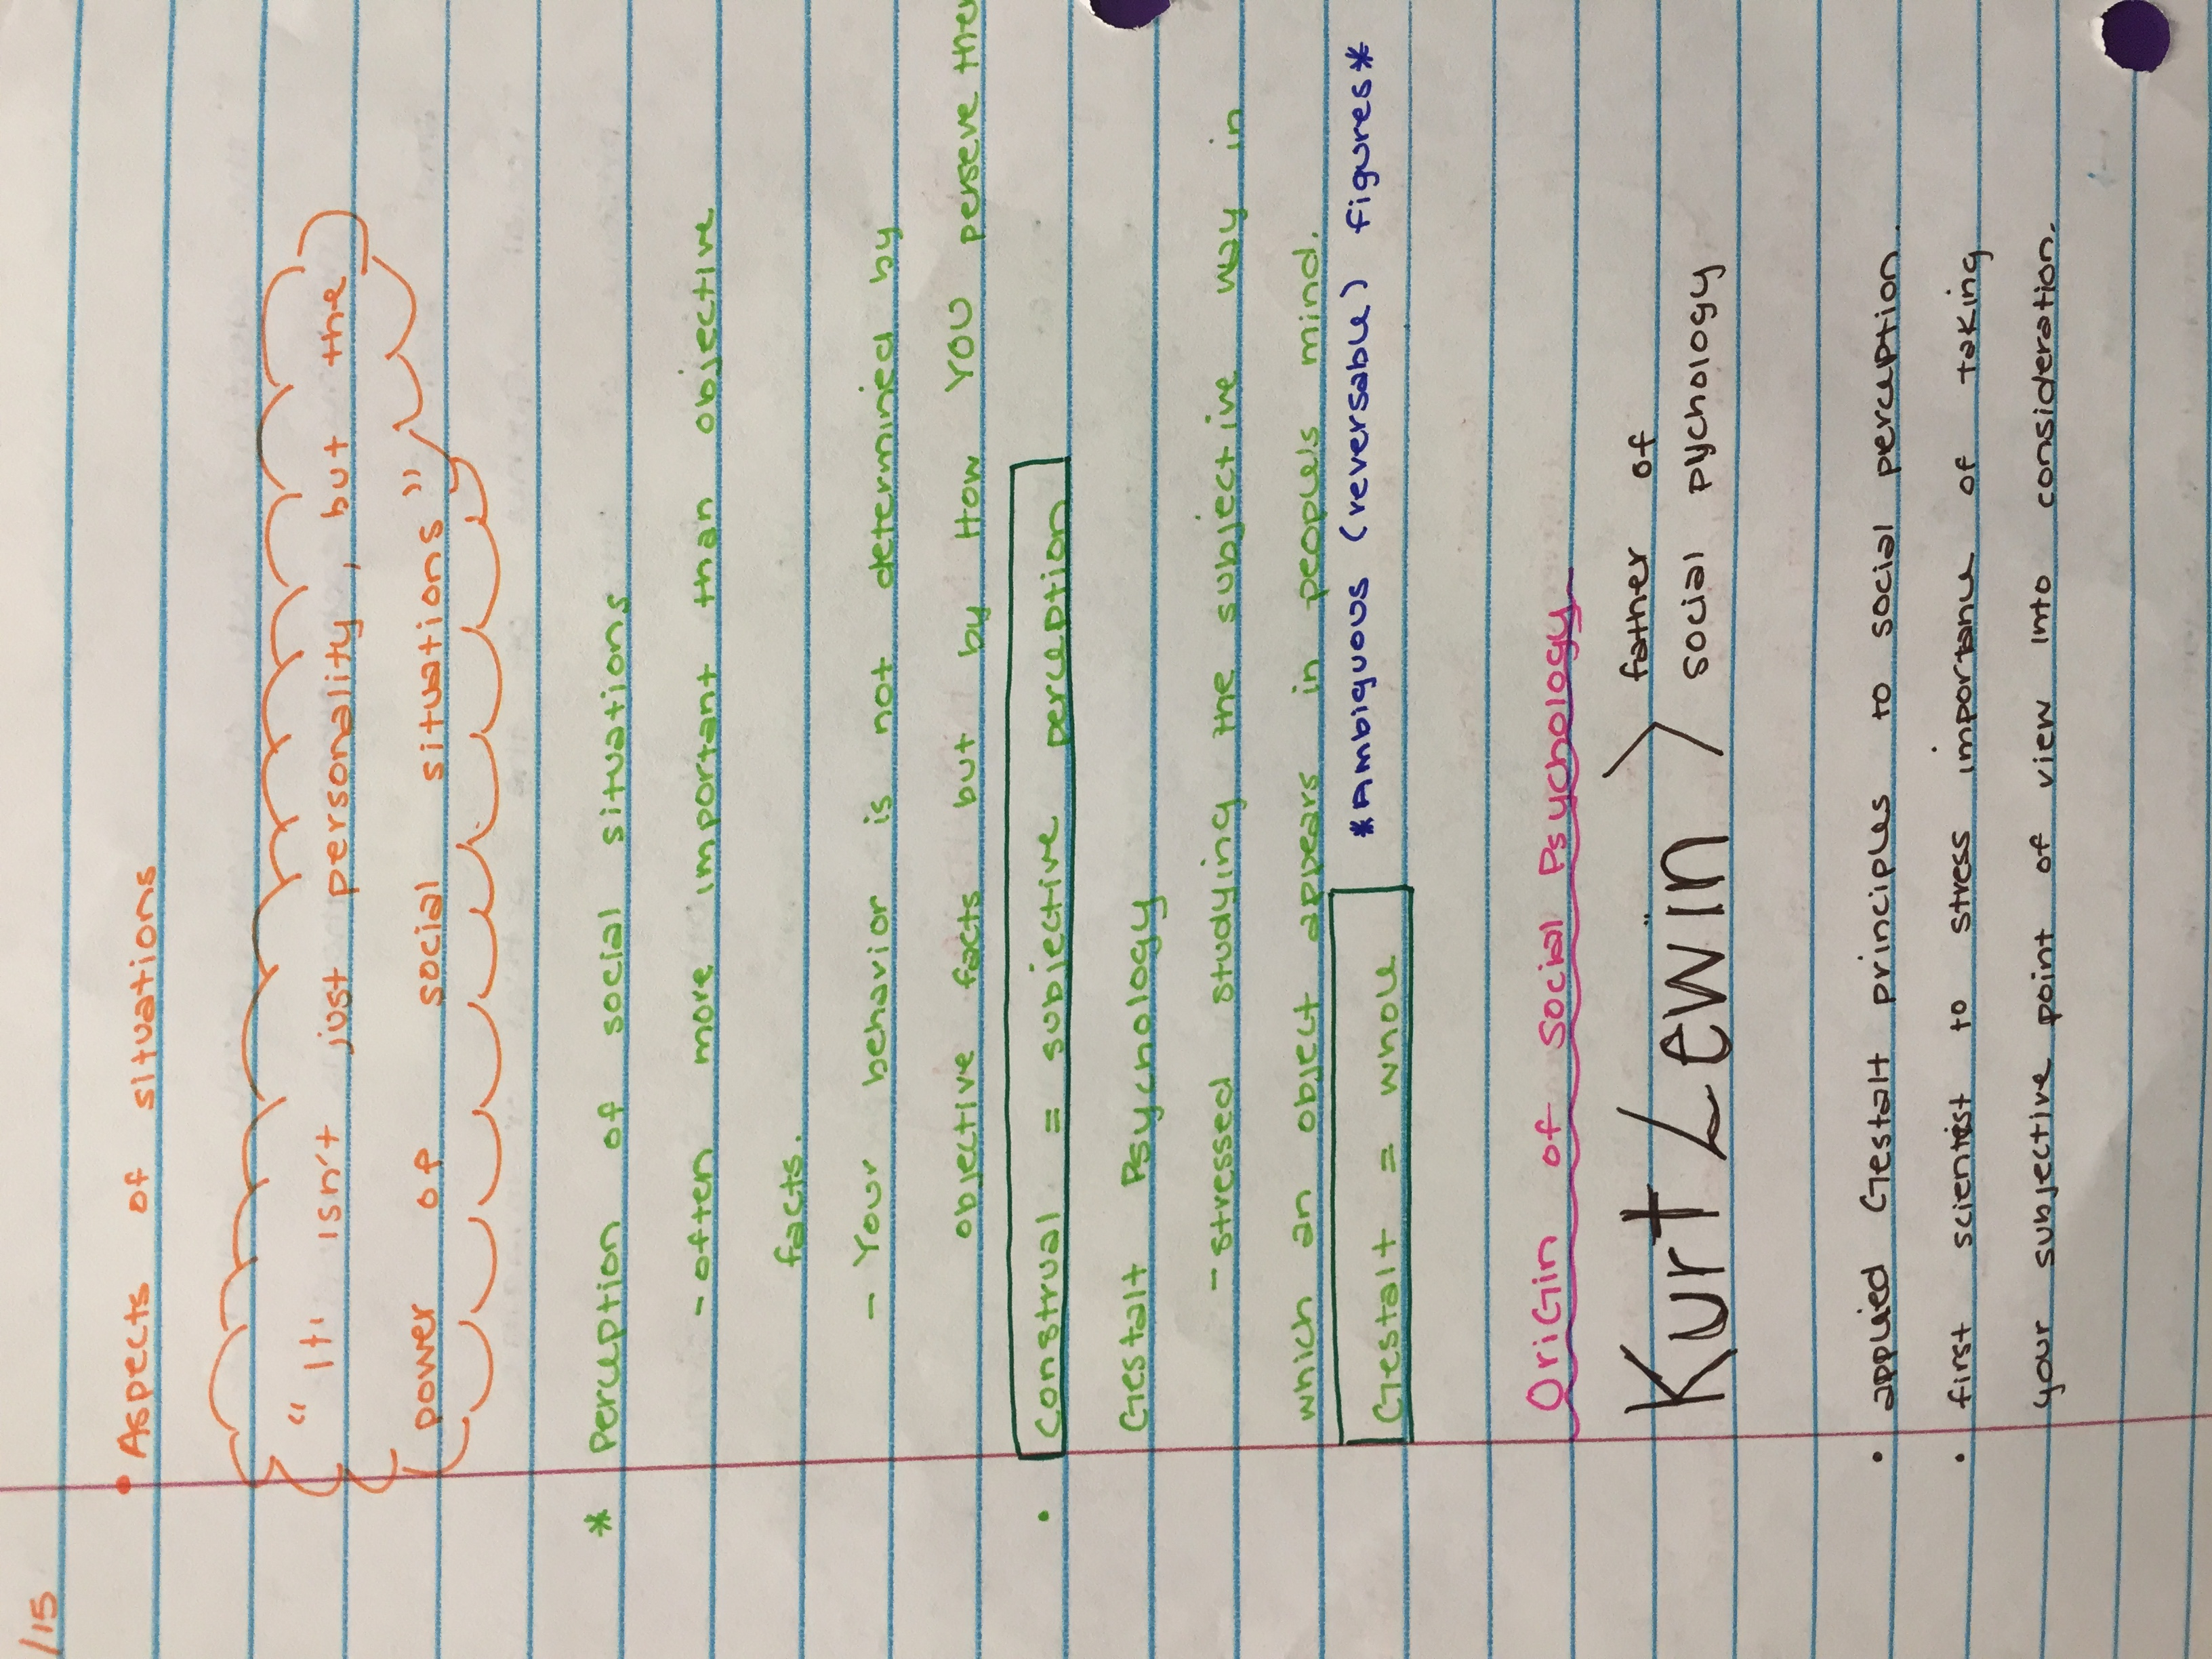 /15
• Aspects of situations
"It isn't just personality, but the
power of social situations"
* Perception of social situations
- often more important than objective
facts.
- Your behavior is not determined by
objective facts but by How YOU perseve the
• Construal = subjective perception
Gestalt Psychology
- stressed studying the subjective way in
which an object appears in people's mind.
Gestalt = whole *Ambiguous (reversable) figures*
OriGin of Social Psychology
Kurt Lewin > father of
social pychology
• applied Gestalt principles to social perception.
• first scientist to stress importance of taking
your subjective point of view into consideration.